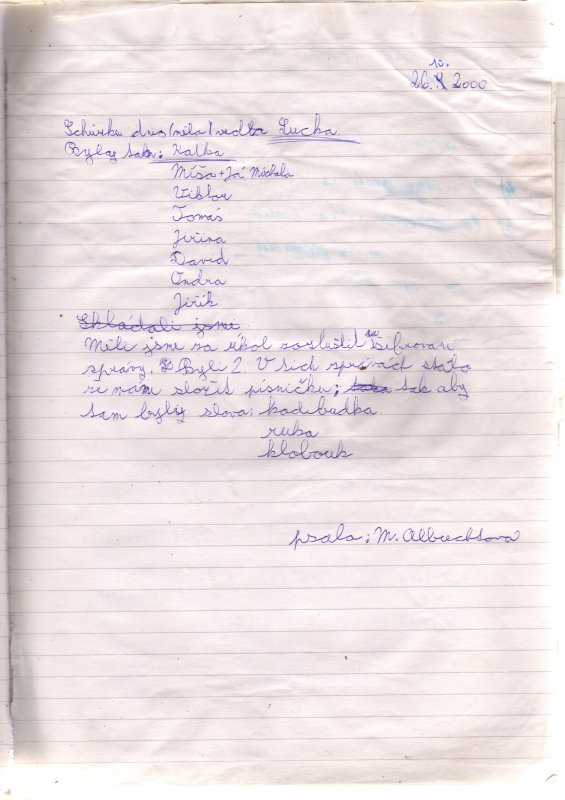 10.
26. 2000
Schůzku dnes (měla) vedla Lucka
Byly tam: Katka
Míša + Já Michala
Viktor
Tomáš
Jiřina
David
Ondra
Jiřík
Skládali jsme
Měli jsme za úkol rozluštit šifrovan
správy. Byli 2. V tich správách stálo
že máme složit písničku; tak aby
tam byly slova: kadibudka
ruka
klobouk
psala: M. Albrechtová